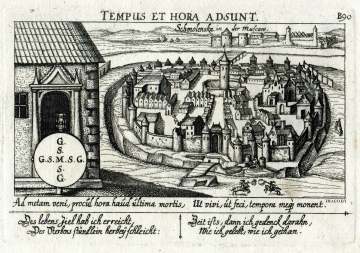 TEMPUS ET HORA ADSUNT.
B90
Schmolenske in der Moscaw.
G.
S.
G.S.M.S.G.
S.
G.
Ad metam veni, procul hora haud ultima mortis,
Ut vivi, ut feci, tempora mege monent.
Des lebens Ziel hab ich erreicht,
Des Sterbens stündlein herbey schleicht:
Zeit ists, dann ich gedenck daran,
Wie ich gelebt, wie ich gethan.